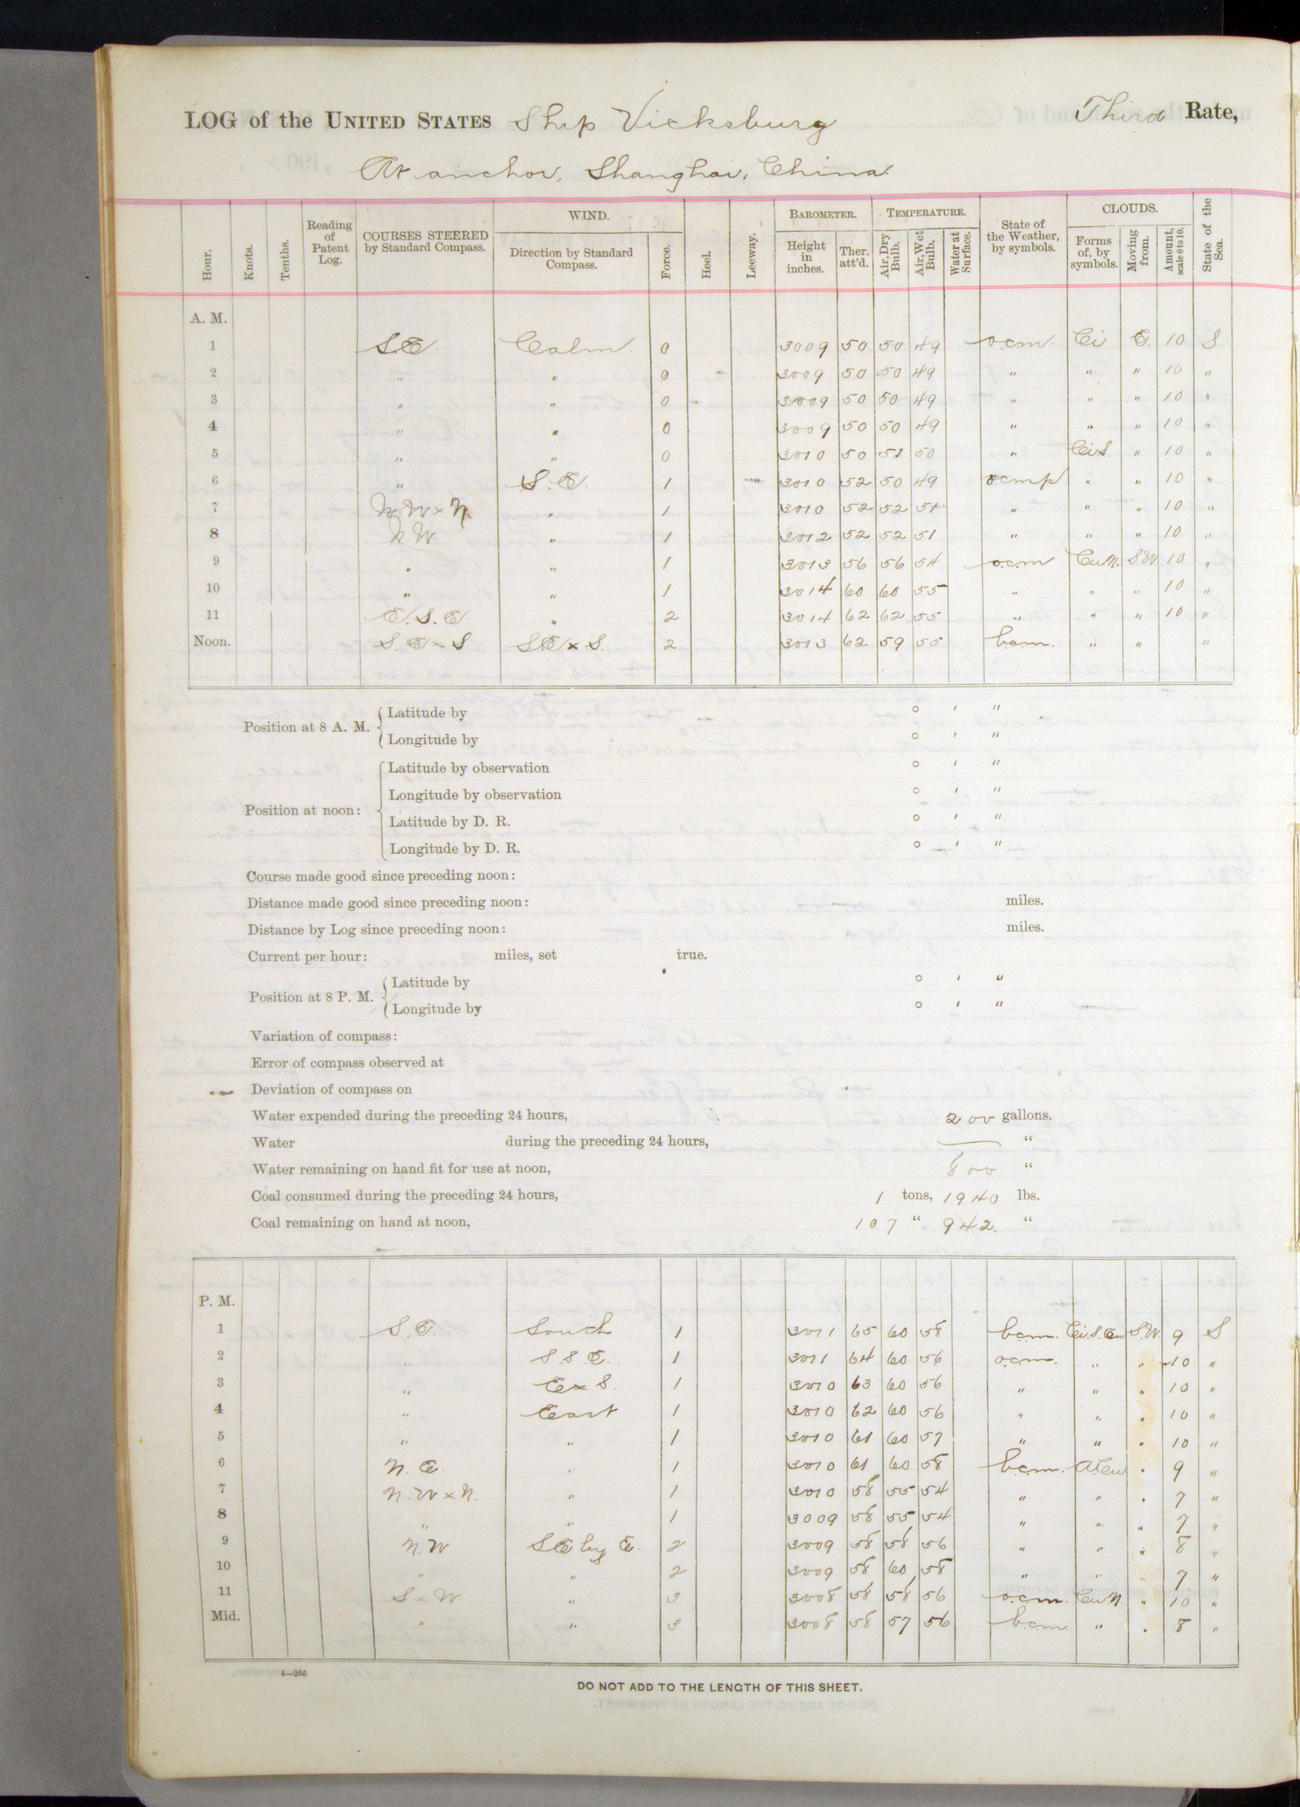 LOG of the UNITED STATES Ship Vicksburg Third Rate,
At anchor, Shanghai, China.
Hour. Knots. Tenths. Reading of Patent Log. COURSES STEERED by Standard Compass. WIND. Direction by Standard Compass. Force. Heel. Leeway. BAROMETER. Height in inches. Ther. att'd. TEMPERATURE. Air, Dry Bulb. Air, Wet Bulb. Water at Surface. State of the Weather, by symbols. CLOUDS. Forms of, by symbols. Moving from. Amount, scale 0 to 10. State of the Sea.
A. M.
1 S.E. Calm. 0 3009 50 50 49 o.c.m. Ci E. 10 S
2 " " 0 3009 50 50 49 " " " 10 "
3 " " 0 3009 50 50 49 " " " 10 "
4 " " 0 3009 50 50 49 " " " 10 "
5 " " 0 3010 50 51 50 " Ci.S. " 10 "
6 " S.E. 1 3010 52 50 49 ocmp " " 10 "
7 N.W x N. " 1 3010 52 52 51 " " " 10 "
8 NW " 1 3012 52 52 51 " " " 10 "
9 " " 1 3013 56 56 54 o.c.m Cu.N. S.W. 10 "
10 " " 1 3014 60 60 55 " " " 10 "
11 E.S.E. " 2 3014 62 62 55 " " " 10 "
Noon. S.E x S SE x S. 2 3013 62 59 55 bcm. " " "
Position at 8 A. M. Latitude by ° ′ ″
Longitude by ° ′ ″
Position at noon: Latitude by observation ° ′ ″
Longitude by observation ° ′ ″
Latitude by D. R. ° ′ ″
Longitude by D. R. ° ′ ″
Course made good since preceding noon:
Distance made good since preceding noon: miles.
Distance by Log since preceding noon: miles.
Current per hour: miles, set true.
Position at 8 P. M. Latitude by ° ′ ″
Longitude by ° ′ ″
Variation of compass:
Error of compass observed at
Deviation of compass on
Water expended during the preceding 24 hours, 200 gallons.
Water during the preceding 24 hours, — "
Water remaining on hand fit for use at noon, 800 "
Coal consumed during the preceding 24 hours, 1 tons, 1940 lbs.
Coal remaining on hand at noon, 107 " 942 "
P. M.
1 S.E. South 1 3011 65 60 58 bcm. Ci.S.Cu S.W 9 S
2 " S.S.E. 1 3011 64 60 56 o.c.m. " " 10 "
3 " E x S. 1 3010 63 60 56 " " " 10 "
4 " East 1 3010 62 60 56 " " " 10 "
5 " " 1 3010 61 60 57 " " " 10 "
6 N.E. " 1 3010 61 60 58 b.c.m. A.Cu " 9 "
7 N.W x N. " 1 3010 58 55 54 " " " 7 "
8 " " 1 3009 58 55 54 " " " 7 "
9 N.W SE by E. 2 3009 58 58 56 " " " 8 "
10 " " 2 3009 58 60 58 " " " 7 "
11 S x W " 3 3008 58 58 56 o.c.m. Cu N " 10 "
Mid. " " 3 3008 58 57 56 b.c.m " " 8 "
4—266
DO NOT ADD TO THE LENGTH OF THIS SHEET.